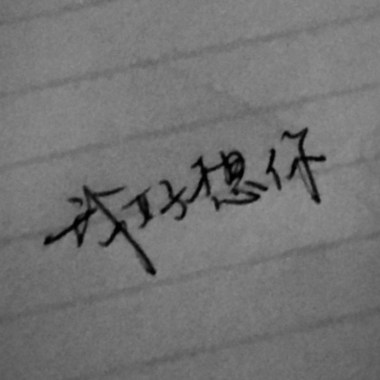 我好想你